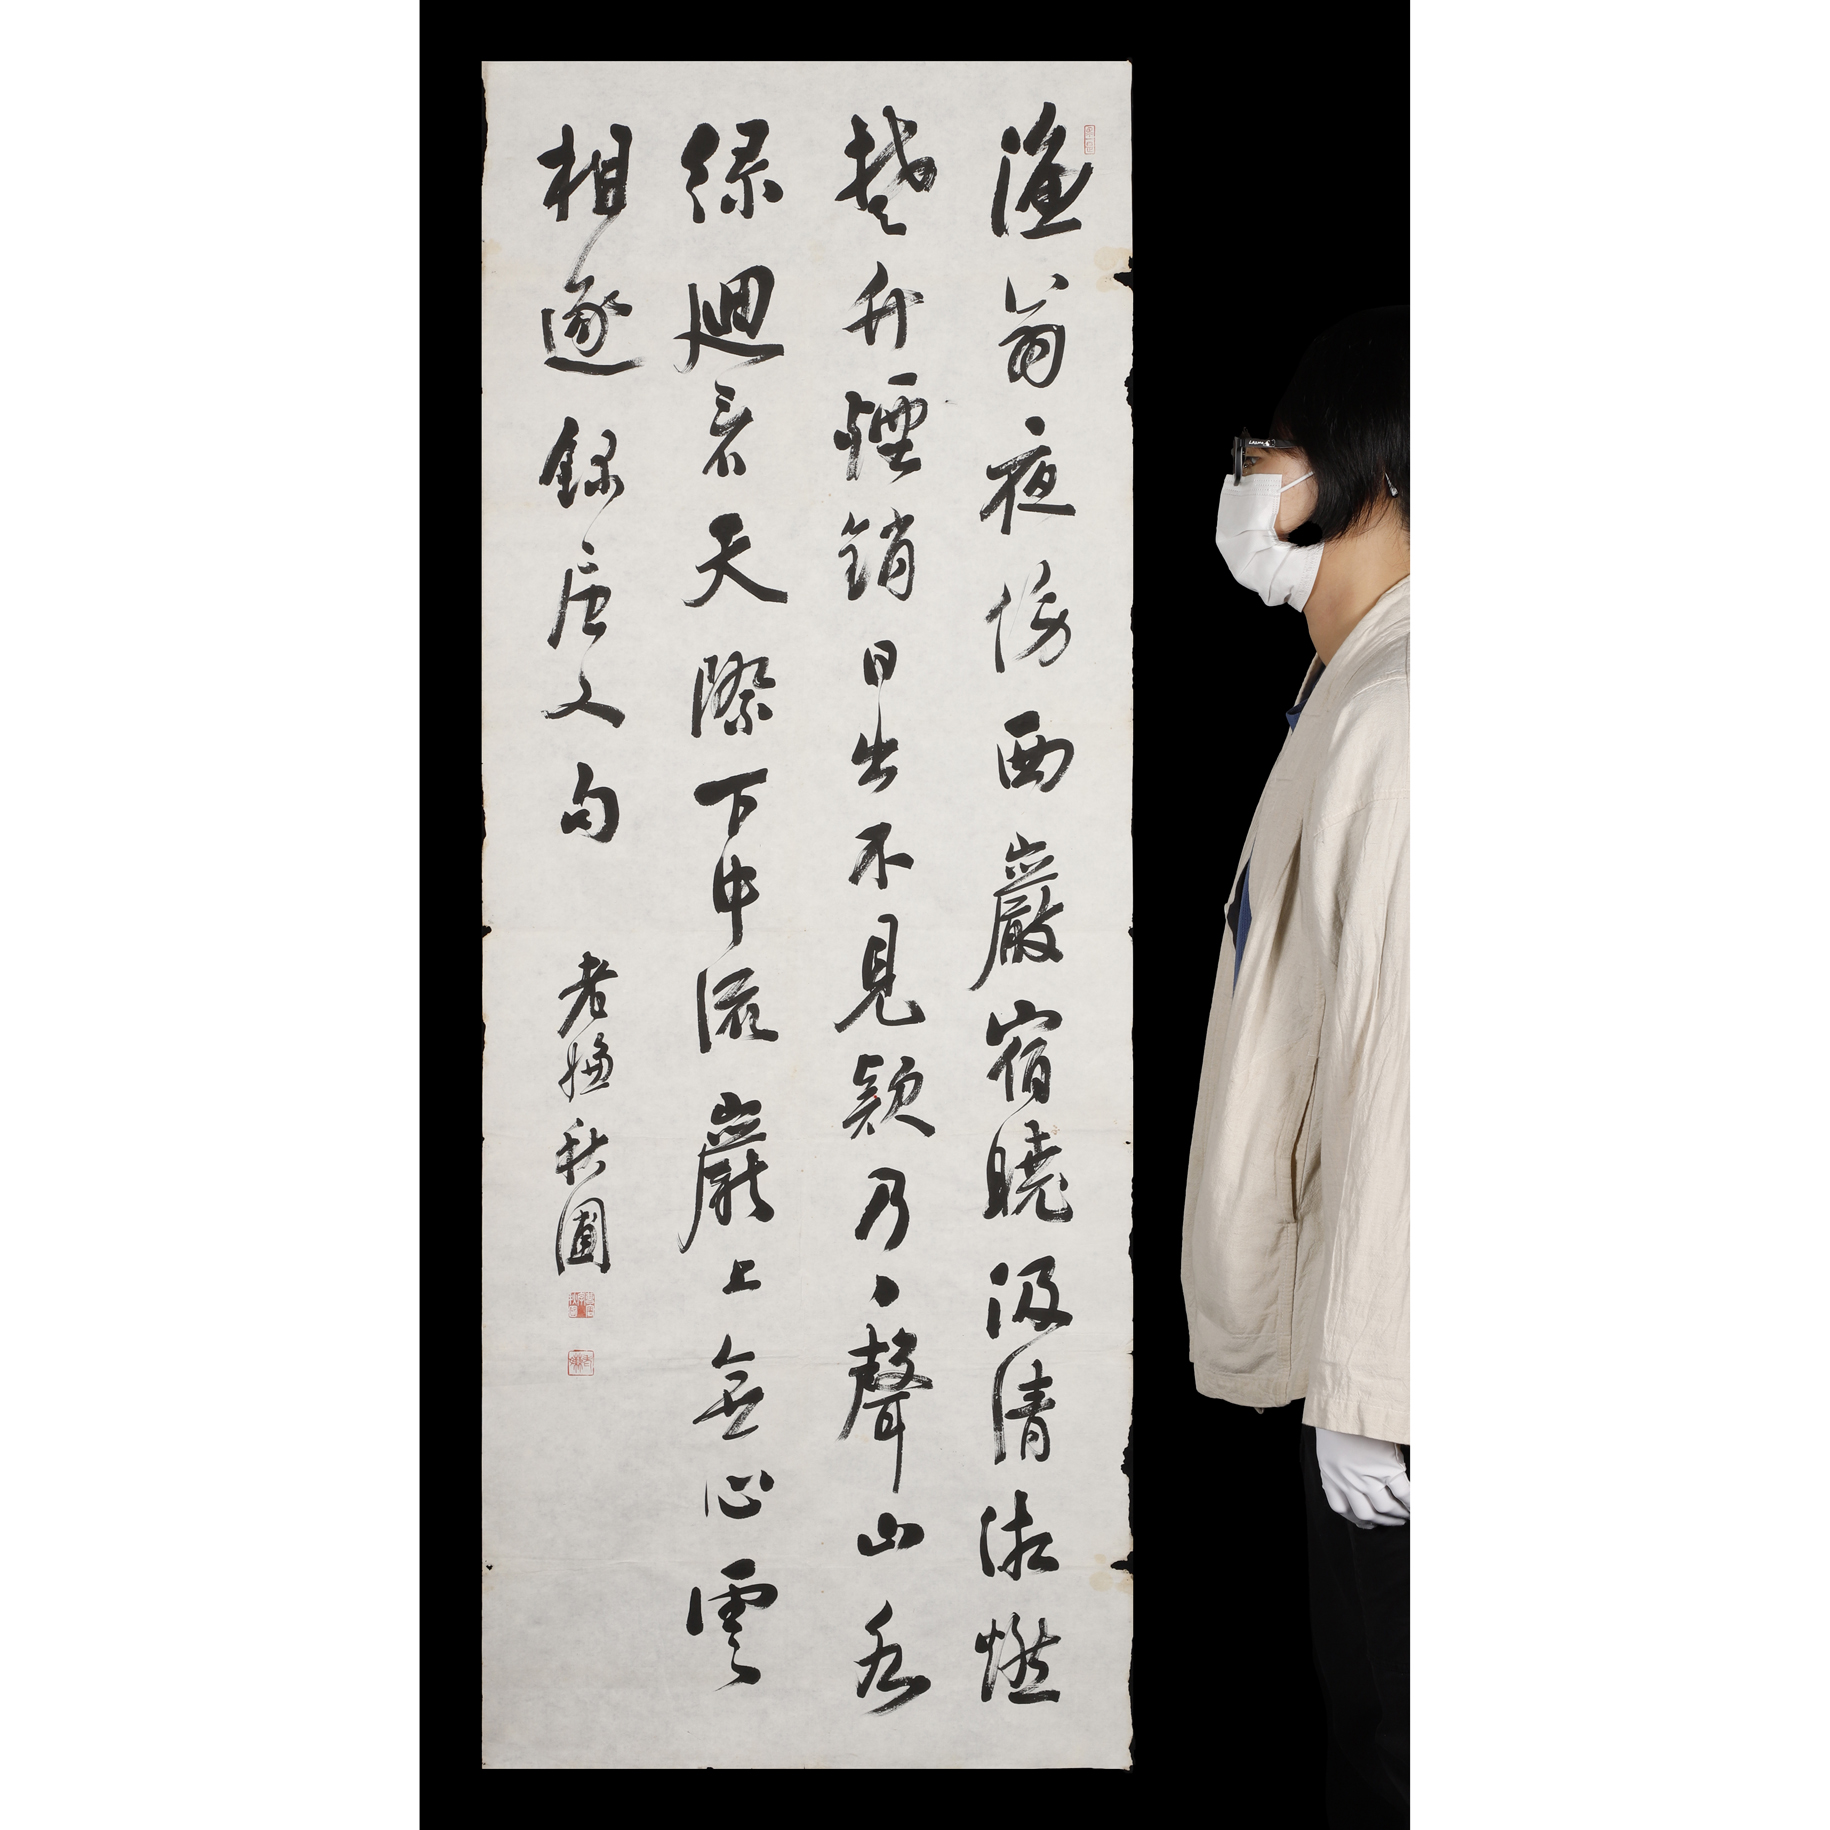 漁翁夜傍西巖宿曉汲清湘燃
楚竹煙銷日出不見欸乃一聲山水
綠迴看天際下中流巖上無心雲
相逐 錄唐人句 老秋圃